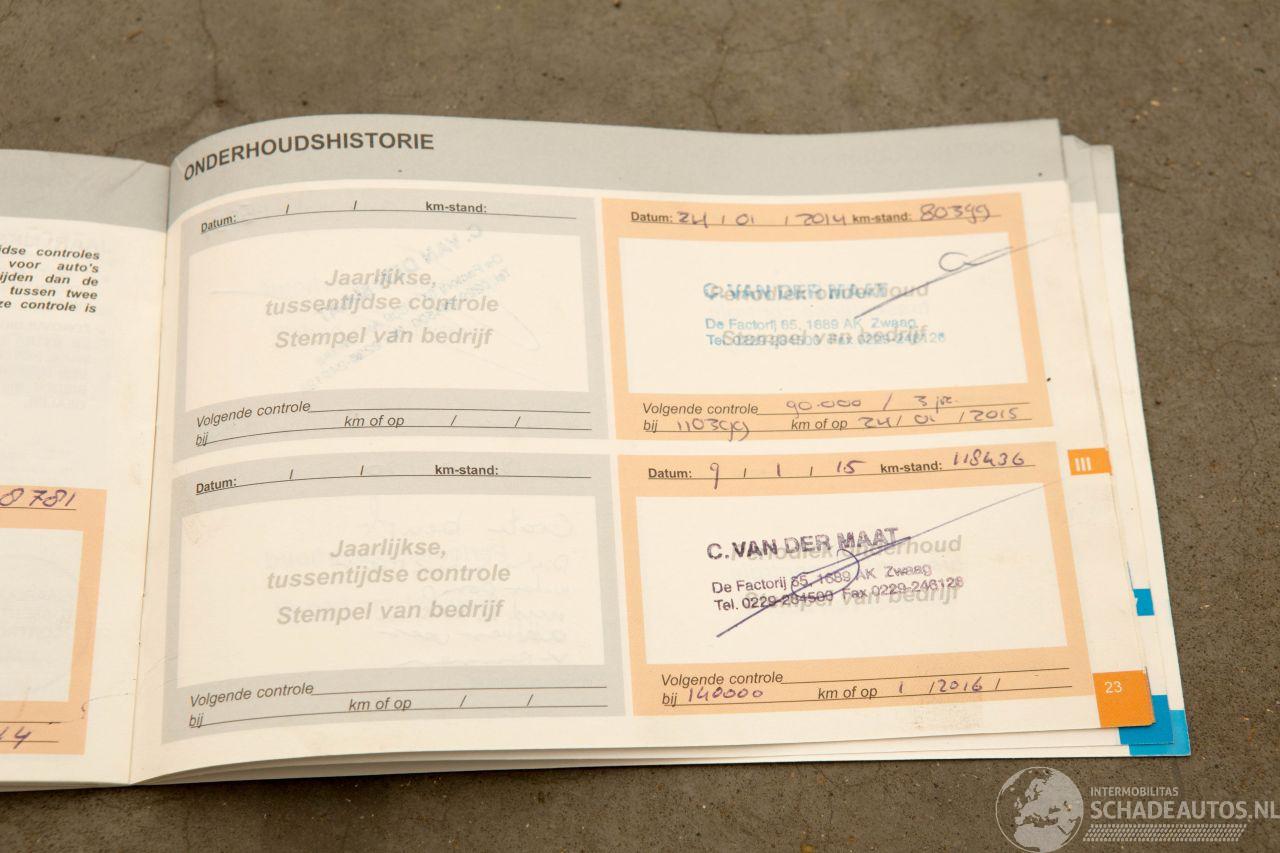 ONDERHOUDSHISTORIE
dse controles
voor auto's
ijden dan de
tussen twee
ze controle is
8781
14
Datum: / / km-stand:
Jaarlijkse,
tussentijdse controle
Stempel van bedrijf
Volgende controle
bij km of op / /
Datum: 24 / 01 / 2014 km-stand: 80399
Periodiek onderhoud
Stempel van bedrijf
C. VAN DER MAAT
De Factorij 65, 1689 AK Zwaag
Tel. 0229-234500 Fax 0229-246126
Volgende controle 90.000 / 3 jr.
bij 110399 km of op 24 / 01 / 2015
Datum: / / km-stand:
Jaarlijkse,
tussentijdse controle
Stempel van bedrijf
Volgende controle
bij km of op / /
Datum: 9 / 1 / 15 km-stand: 118436
Periodiek onderhoud
Stempel van bedrijf
C. VAN DER MAAT
De Factorij 65, 1689 AK Zwaag
Tel. 0229-234500 Fax 0229-246126
Volgende controle
bij 140000 km of op 1 / 2016 /
III
23
INTERMOBILITAS
SCHADEAUTOS.NL